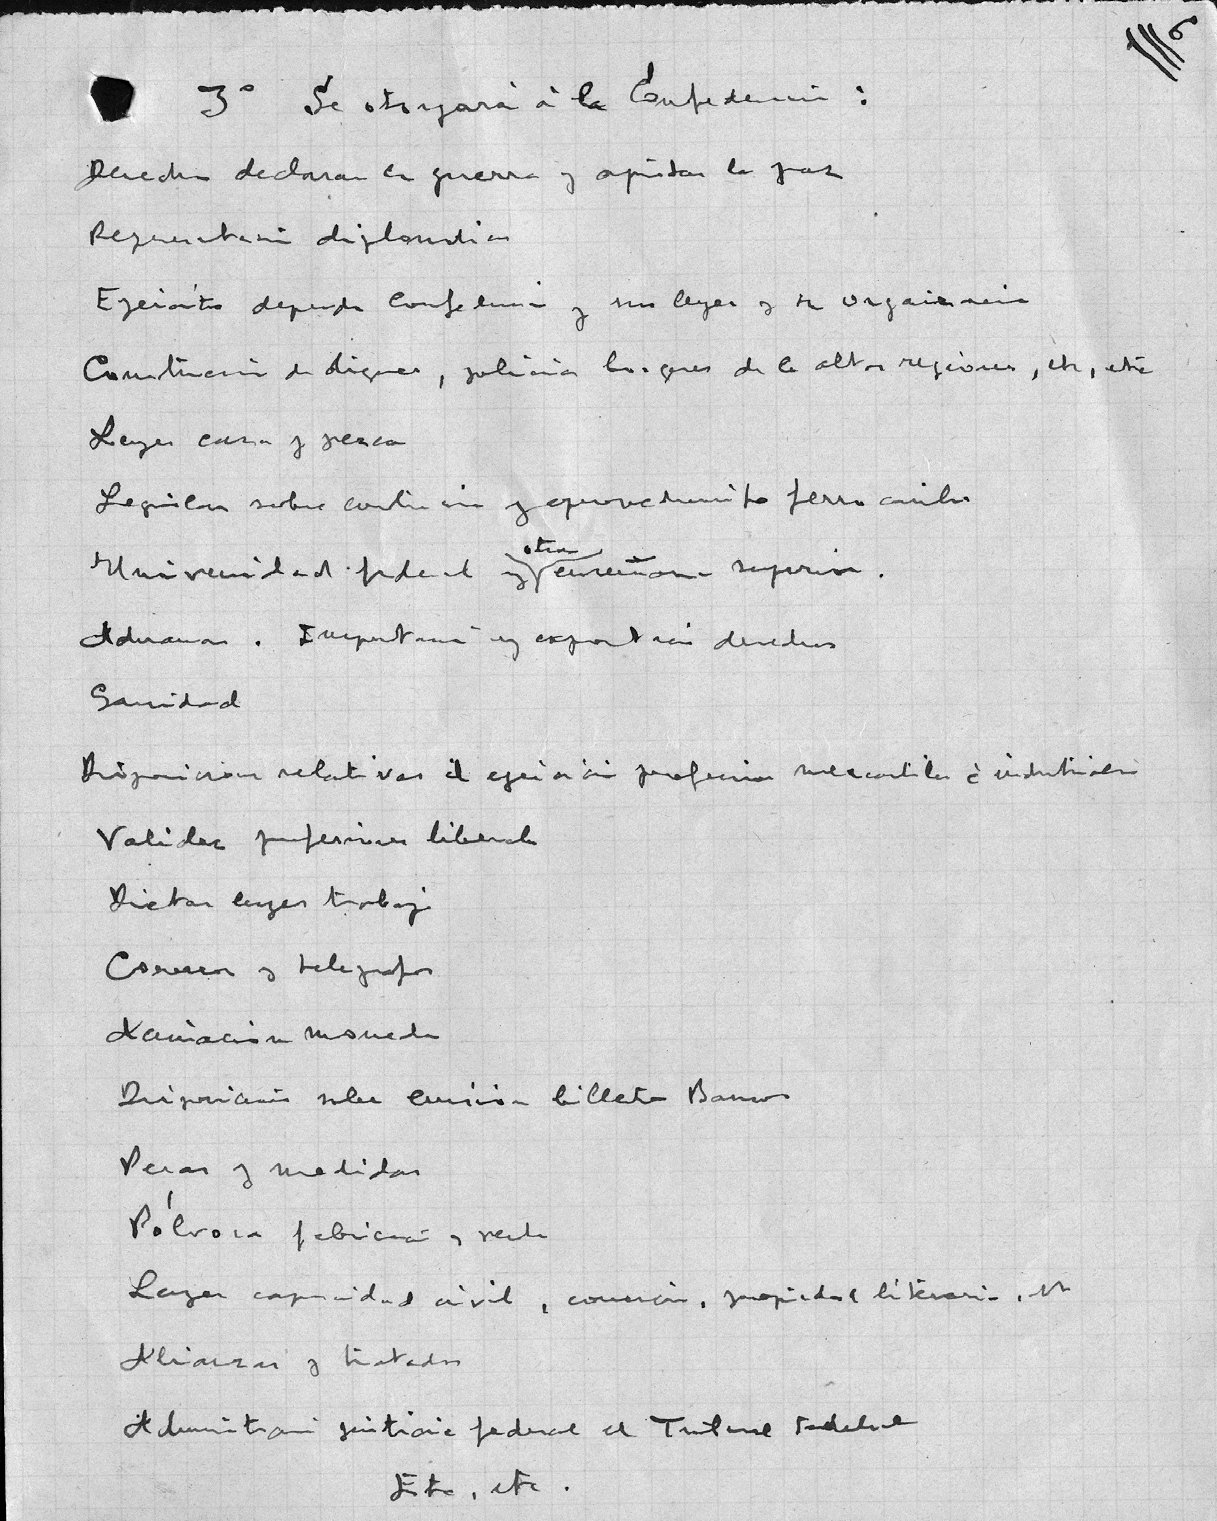 6
3º Se otorgará á la Confederación:
Derecho declarar la guerra y ajustar la paz
Representación diplomática
Ejército depende Confederación y sus leyes y su organización
Construcción de diques, policía bosques de las altas regiones, etc, etc
Leyes caza y pesca
Legislar sobre construcción y aprovechamiento ferrocarriles
Universidad federal y otras enseñanza superior.
Aduanas. Importación y exportación derechos
Sanidad
Disposiciones relativas al ejercicio profesiones mercantiles é industriales
Validez profesiones liberales
Dictar leyes trabajo
Correos y telégrafos
Acuñación moneda
Disposición sobre emisión billetes Bancos
Pesas y medidas
Pólvora fabricación y venta
Leyes capacidad civil, comercio, propiedad literaria, etc
Alianzas y tratados
Administración justicia federal el Tribunal Federal
Etc, etc.